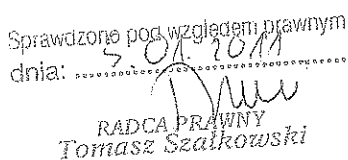 Sprawdzono pod względem prawnym
dnia: 5.01.2011
RADCA PRAWNY
Tomasz Szałkowski